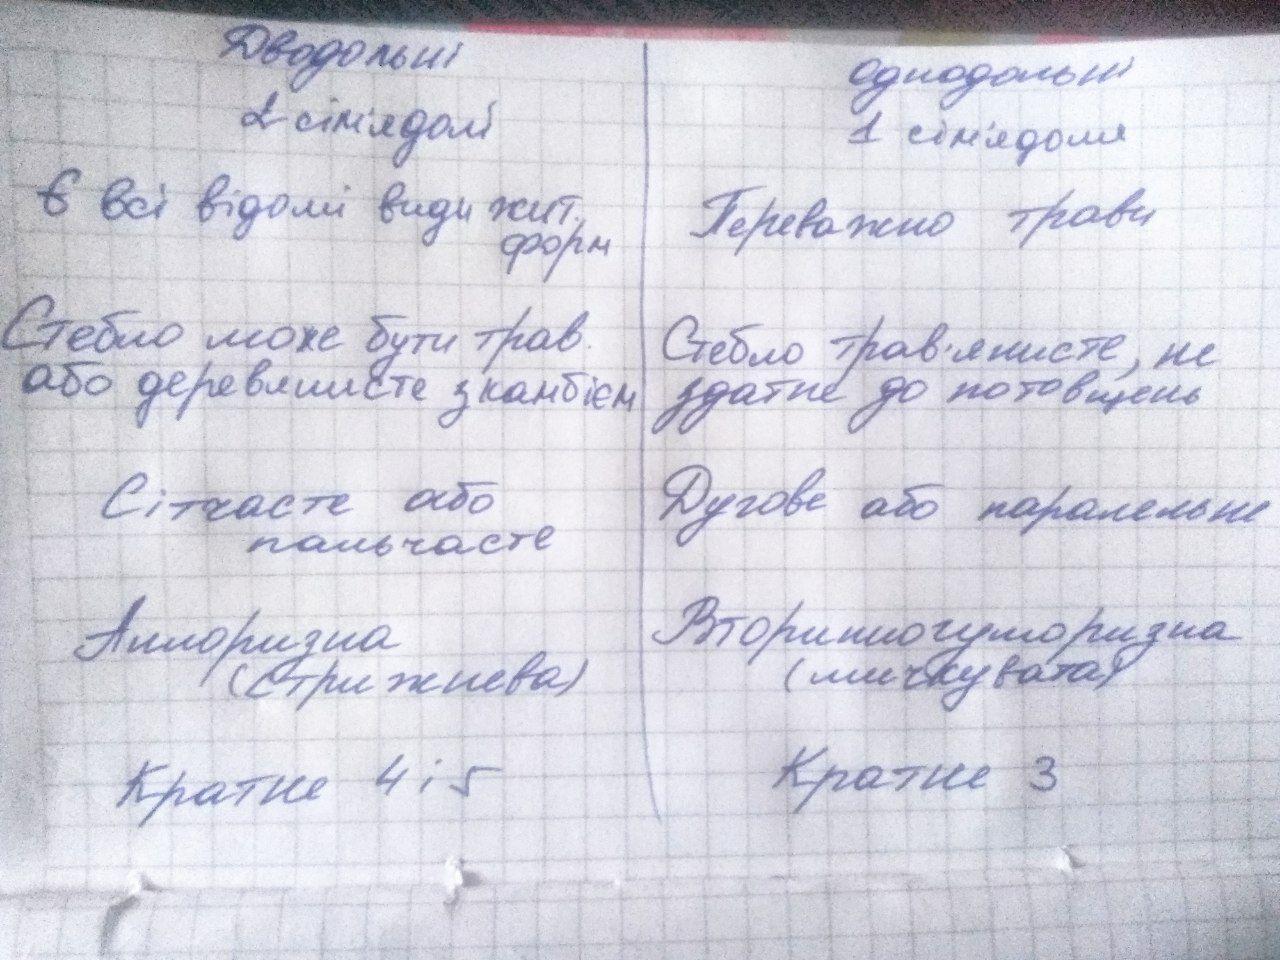 Дводольні
2 сім'ядолі
Є всі відомі види жит.
форм
Стебло може бути трав.
або деревянисте з камбієм
Сітчасте або
пальчасте
Алоризна
(стрижнева)
Кратне 4 і 5
Однодольні
1 сім'ядоля
Переважно трави
Стебло трав'янисте, не
здатне до потовщень
Дугове або паралельне
Вторинногоморизна
(мичкувата)
Кратне 3